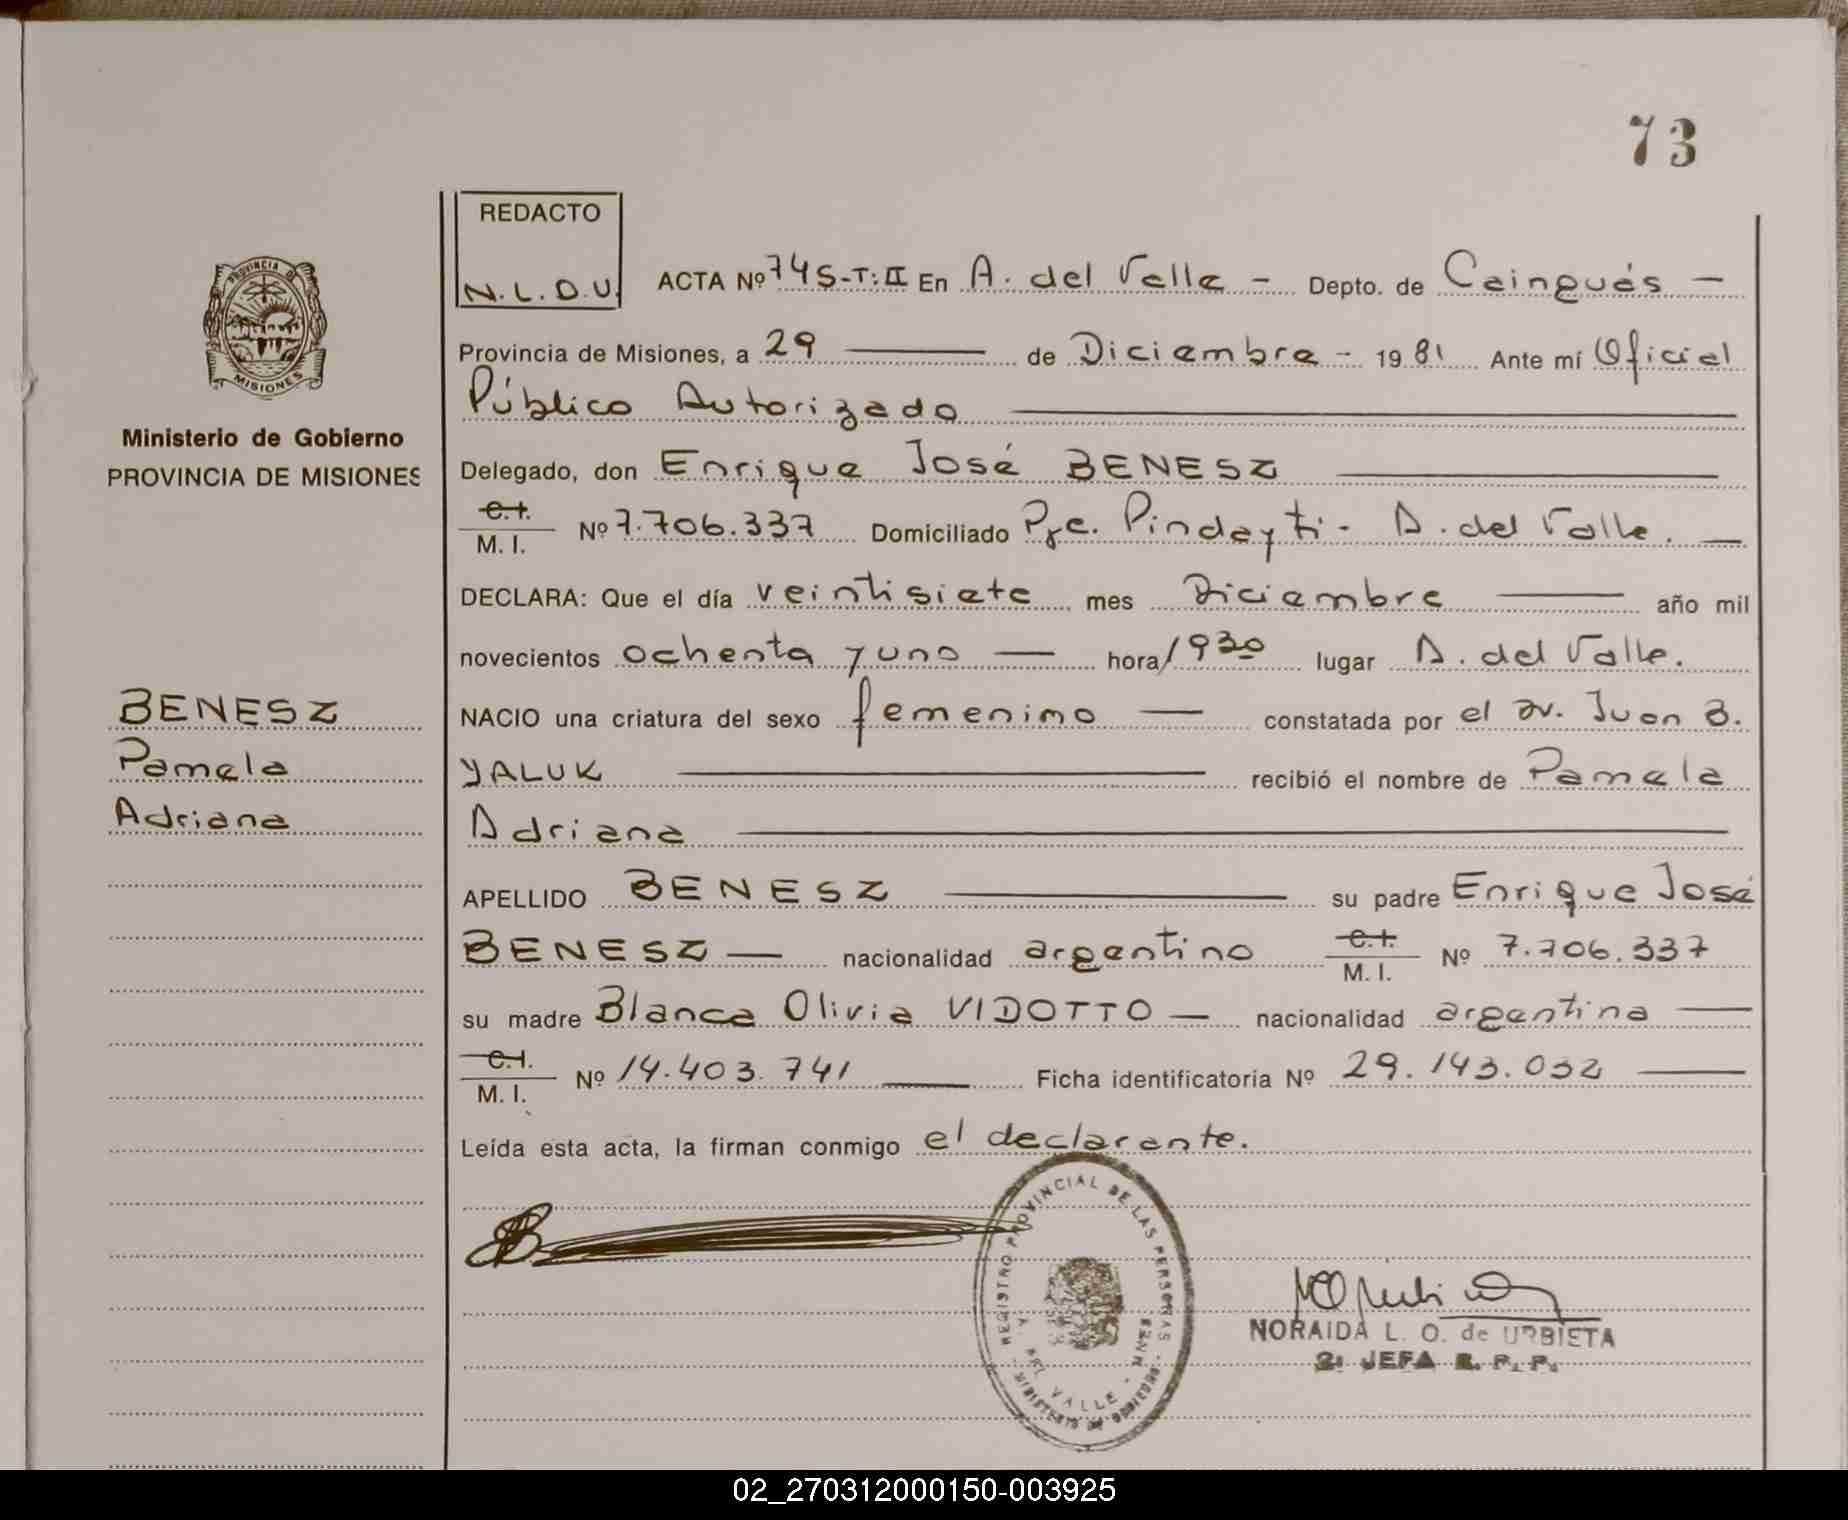 73
REDACTO
N. L. D. U.
PROVINCIA DE
MISIONES
Ministerio de Gobierno
PROVINCIA DE MISIONES
ACTA Nº 745-T:II En A. del Valle - Depto. de Cainguás -
Provincia de Misiones, a 29 de Diciembre - 1981 Ante mí Oficial
Público Autorizado
Delegado, don Enrique José BENESZ
C.I. M. I. Nº 7.706.337 Domiciliado Pje. Pindayti - A. del Valle.
DECLARA: Que el día veintisiete mes Diciembre año mil
novecientos ochenta y uno hora 1930 lugar A. del Valle.
BENESZ
Pamela
Adriana
NACIO una criatura del sexo femenino constatada por el Dr. Juan B.
YALUK recibió el nombre de Pamela
Adriana
APELLIDO BENESZ su padre Enrique José
BENESZ nacionalidad argentino C.I. M. I. Nº 7.706.337
su madre Blanca Olivia VIDOTTO nacionalidad argentina
C.I. M. I. Nº 14.403.741 Ficha identificatoria Nº 29.143.032
Leída esta acta, la firman conmigo el declarante.
REGISTRO PROVINCIAL DE LAS PERSONAS
A. DEL VALLE
MINISTERIO DE GOBIERNO
NORAIDA L. O. de URBIETA
JEFA R. P. P.
02_270312000150-003925